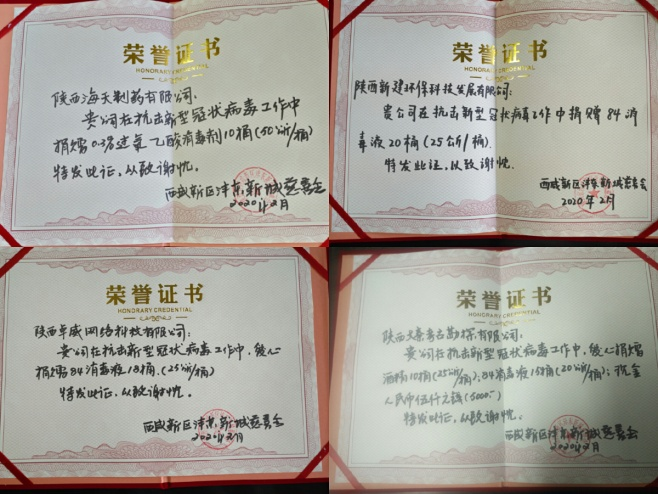 荣誉证书
HONORARY CREDENTIAL
陕西海天制药有限公司:
贵公司在抗击新型冠状病毒工作中
捐赠0.3%过氧乙酸消毒剂10桶(50公斤/桶)
特发此证,以致谢忱。
西咸新区沣东新城慈善会
2020年2月
荣誉证书
HONORARY CREDENTIAL
陕西新建环保科技发展有限公司:
贵公司在抗击新型冠状病毒工作中捐赠84消
毒液20桶(25公斤/桶).
特发此证,以致谢忱.
西咸新区沣东新城慈善会
2020年2月
荣誉证书
HONORARY CREDENTIAL
陕西卓威网络科技有限公司:
贵公司在抗击新型冠状病毒工作中,爱心
捐赠84消毒液18桶.(25公斤/桶)
特发此证,以致谢忱。
西咸新区沣东新城慈善会
2020年2月
荣誉证书
HONORARY CREDENTIAL
陕西 考古勘探有限公司:
贵公司在抗击新型冠状病毒工作中,爱心捐赠
酒精10桶(25公斤/桶);84消毒液15桶(20公斤/桶);现金
人民币伍仟元整(5000元)
特发此证,以致谢忱。
西咸新区沣东新城慈善会
2020年2月